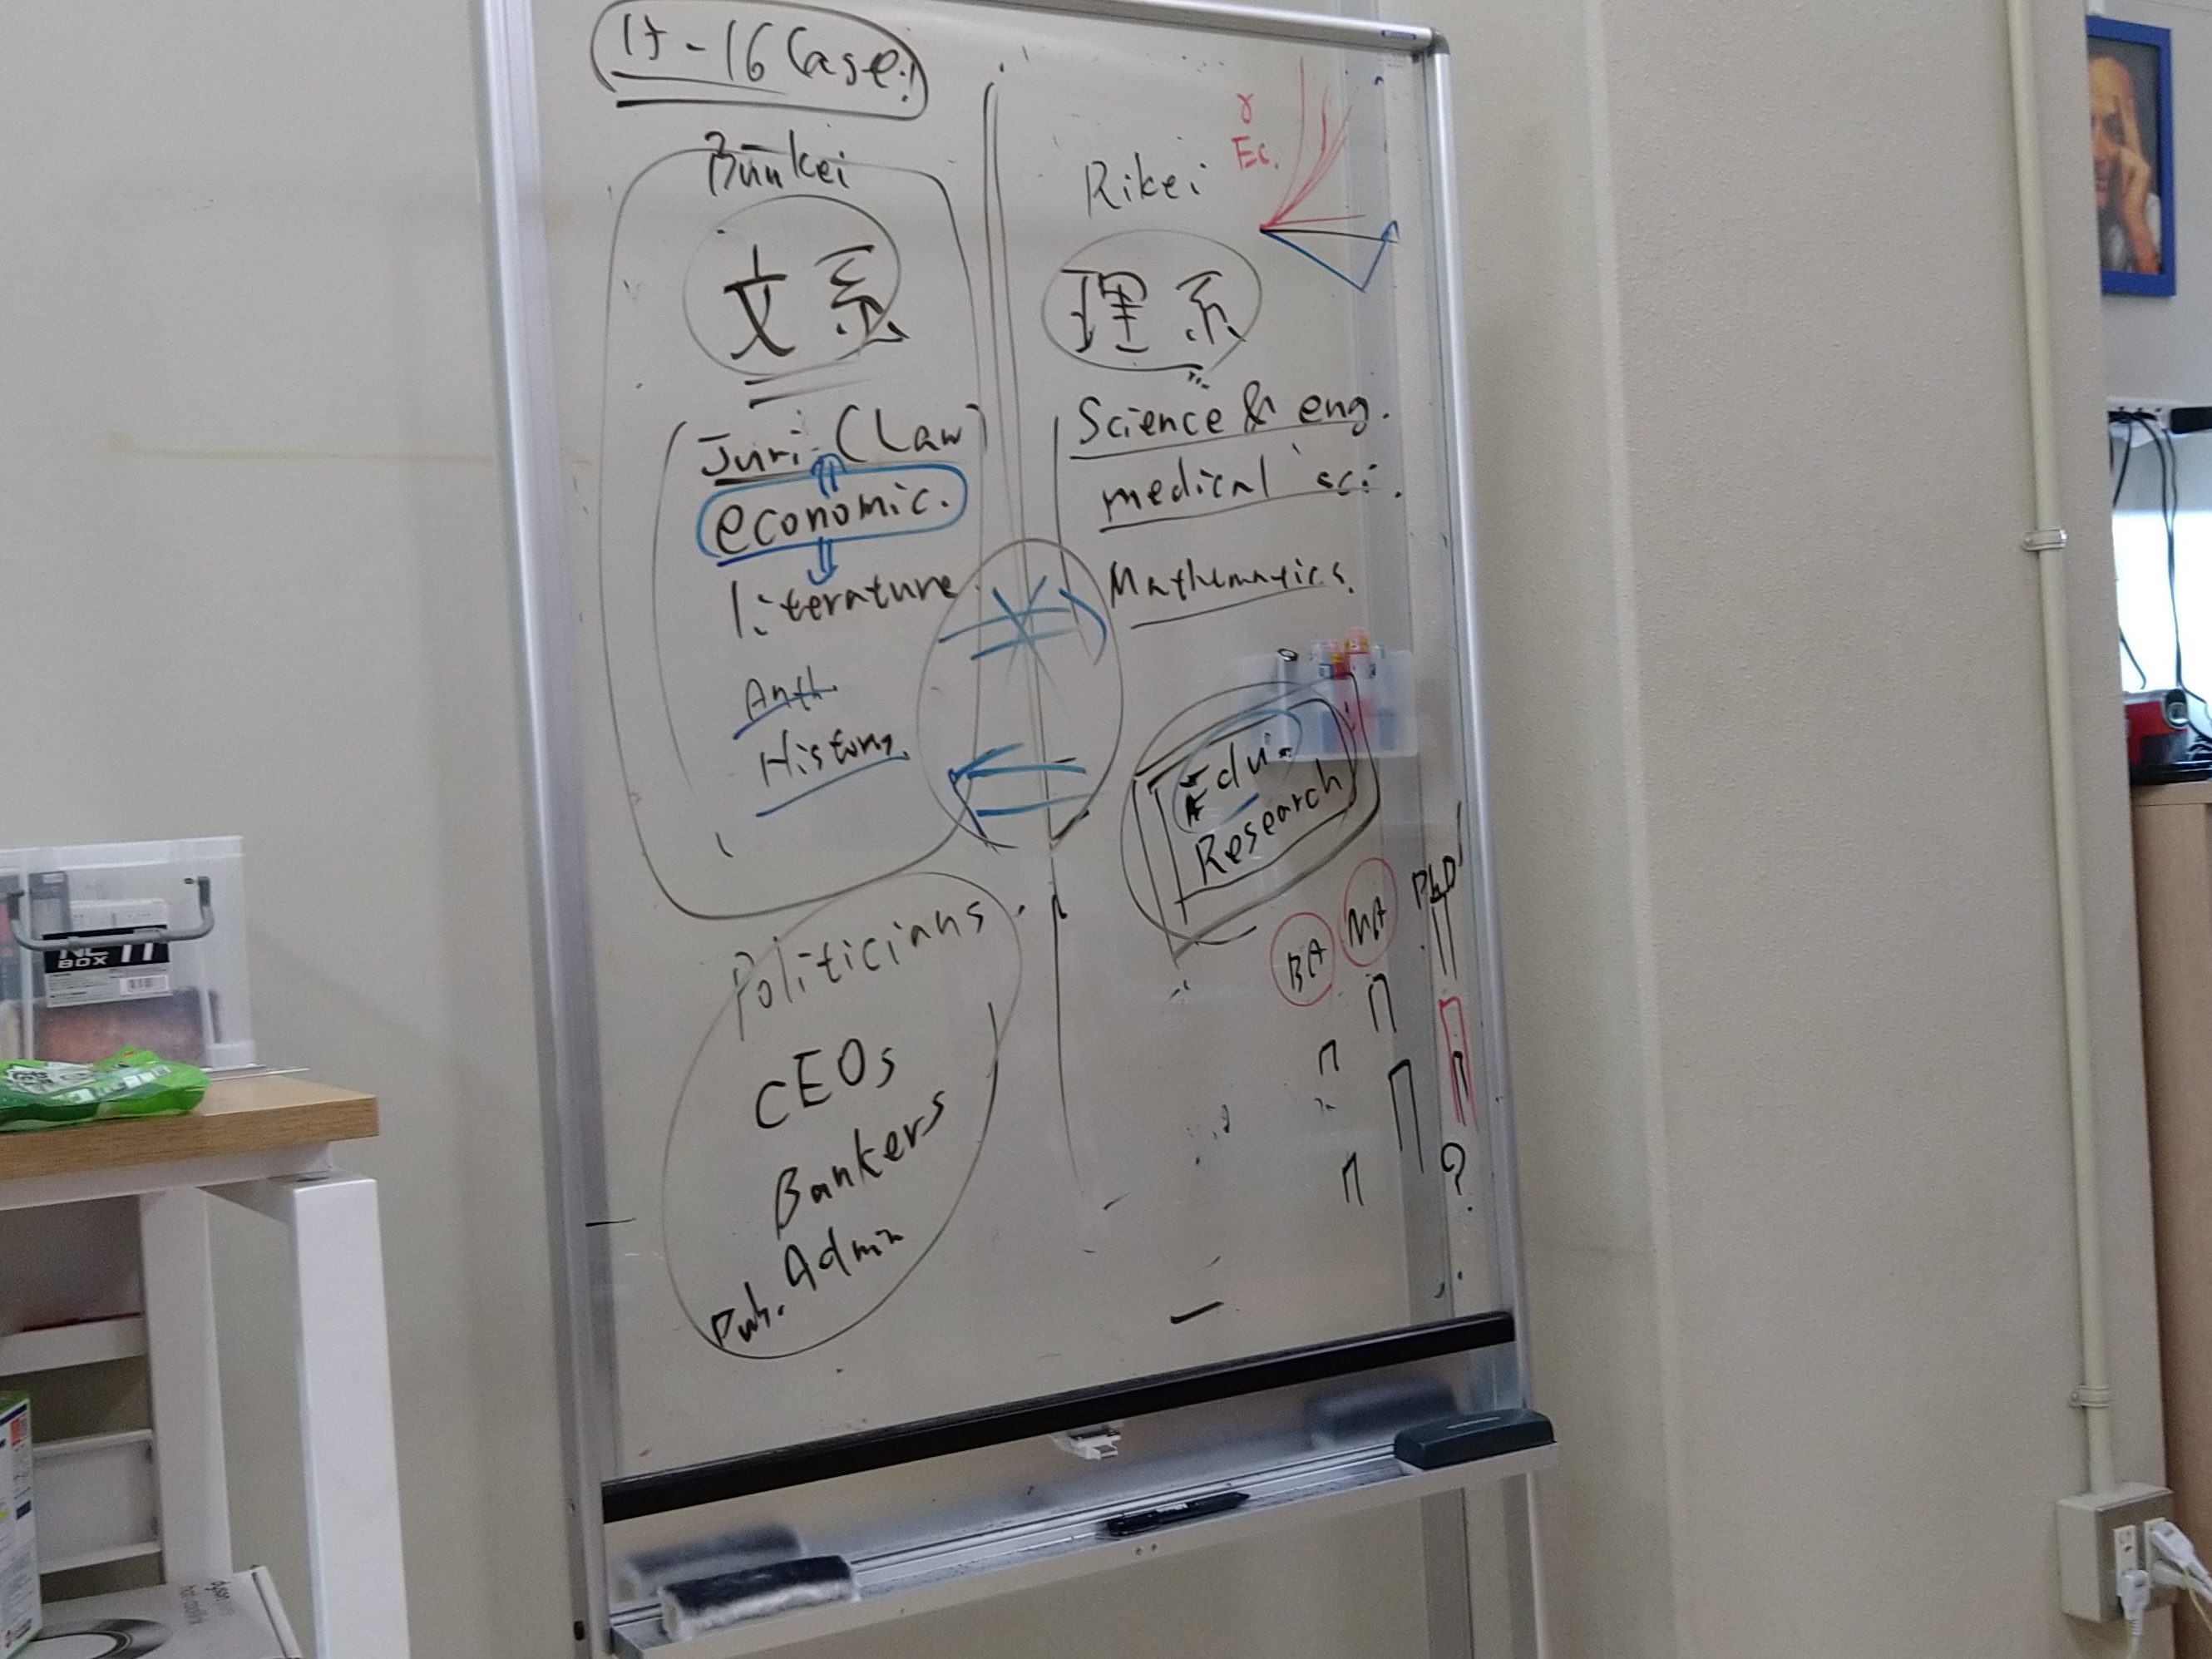 17-16 Case!
Bunkei
文系
Juri. (Law)
economic.
literature
Anth
History
Politicians
CEOs
Bankers
Pub. Admin
Rikei
理系
γ
Ec.
Science & eng.
medical sci.
Mathematics.
Edu.
Research
BA
MA
PhD
?
BOX